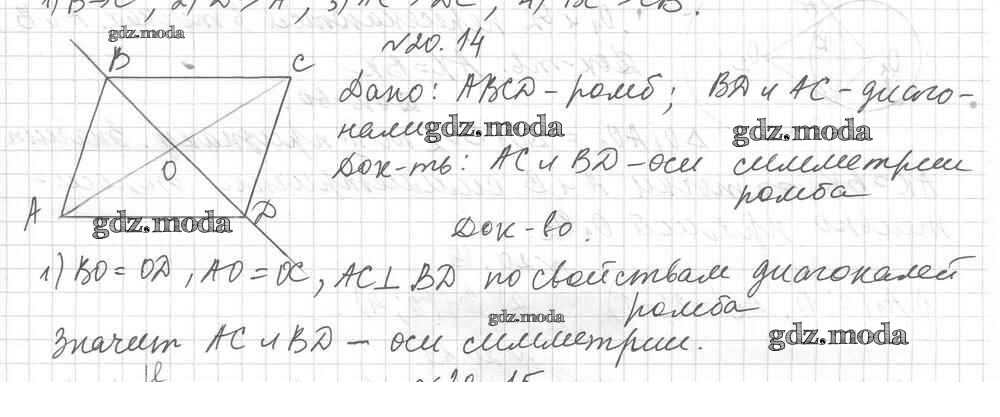 gdz.moda
N20.14
B
C
Дано: ABCD - ромб; BD и AC - диаго-
нали gdz.moda
gdz.moda
O
Док-ть: AC и BD - оси симметрии
ромба
A
D
gdz.moda
Док-во:
1) BO = OD, AO = OC, AC⊥BD по свойствам диагоналей
ромба
gdz.moda
Значит AC и BD - оси симметрии.
gdz.moda